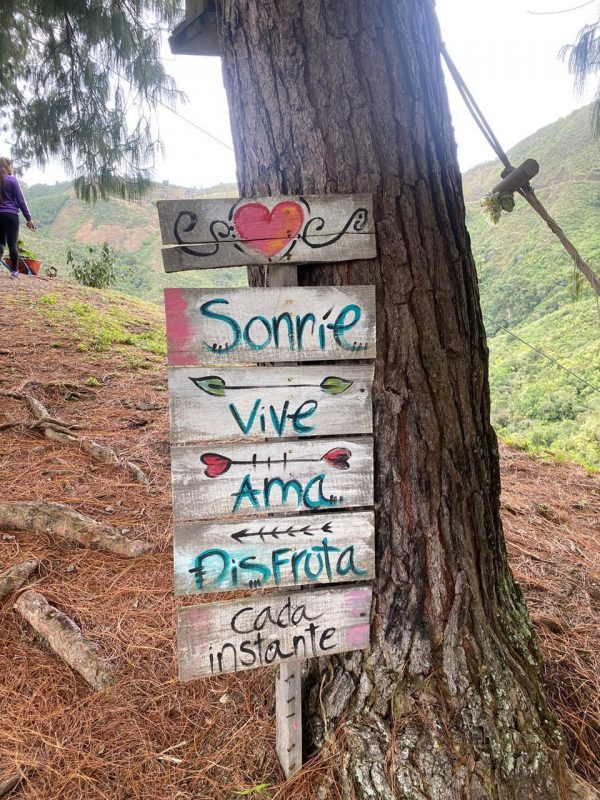 Sonríe
Vive
Ama
Disfruta
cada
instante